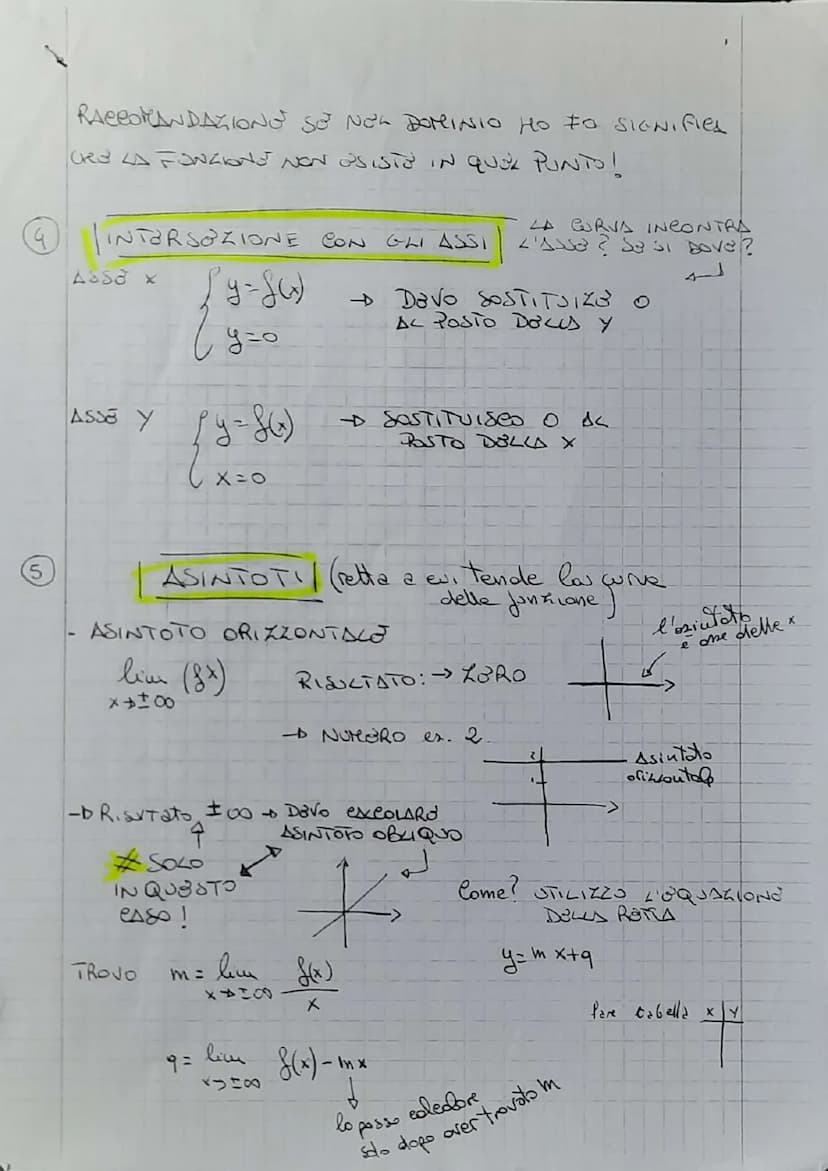 RACCOMANDAZIONE SE NEL DOMINIO HO ≠0 SIGNIFICA
CHE LA FUNZIONE NON ESISTE IN QUEL PUNTO!
④ INTERSEZIONE CON GLI ASSI LA CURVA INCONTRA
L'ASSE? SE SI DOVE?
ASSE x { y=f(x) → DEVO SOSTITUIRE 0
y=0 AL POSTO DELLA Y
ASSE Y { y=f(x) → SOSTITUISCO 0 AL
x=0 POSTO DELLA X
⑤ ASINTOTI (retta a cui tende la curva
della funzione)
- ASINTOTO ORIZZONTALE
l'asintoto
è asse delle x
lim (fx) RISULTATO: → ZERO
x→±∞
→ NUMERO es. 2
2 Asintoto
1 orizzontale
→ Risultato ±∞ → DEVO CALCOLARE
ASINTOTO OBLIQUO
* SOLO
IN QUESTO
CASO!
Come? UTILIZZO L'EQUAZIONE
DELLA RETTA
y=mx+q
TROVO m = lim f(x)
x→±∞ x
Fare tabella x | y
q = lim f(x) - mx
x→±∞
lo posso calcolare
solo dopo aver trovato m